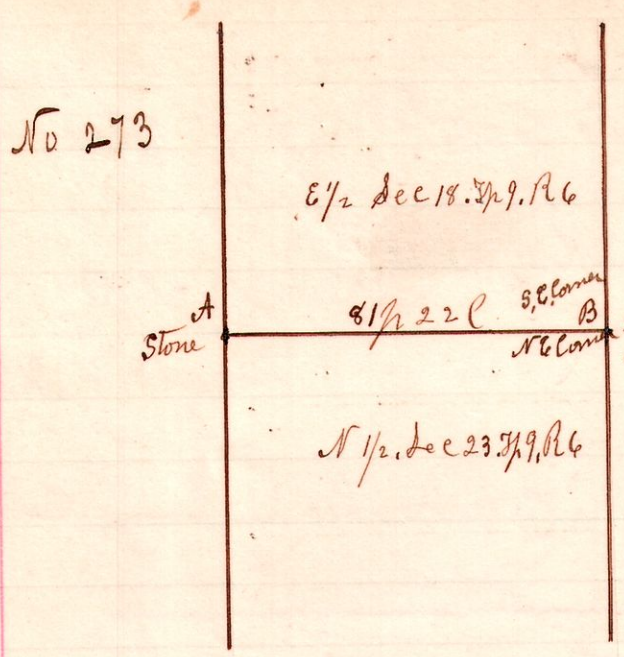 No 273
E 1/2 Sec 18. Tp 9. R 6
A
Stone
81 p 22 l
S, E, Corner
B
N E Corner
N 1/2. Sec 23. Tp 9, R 6